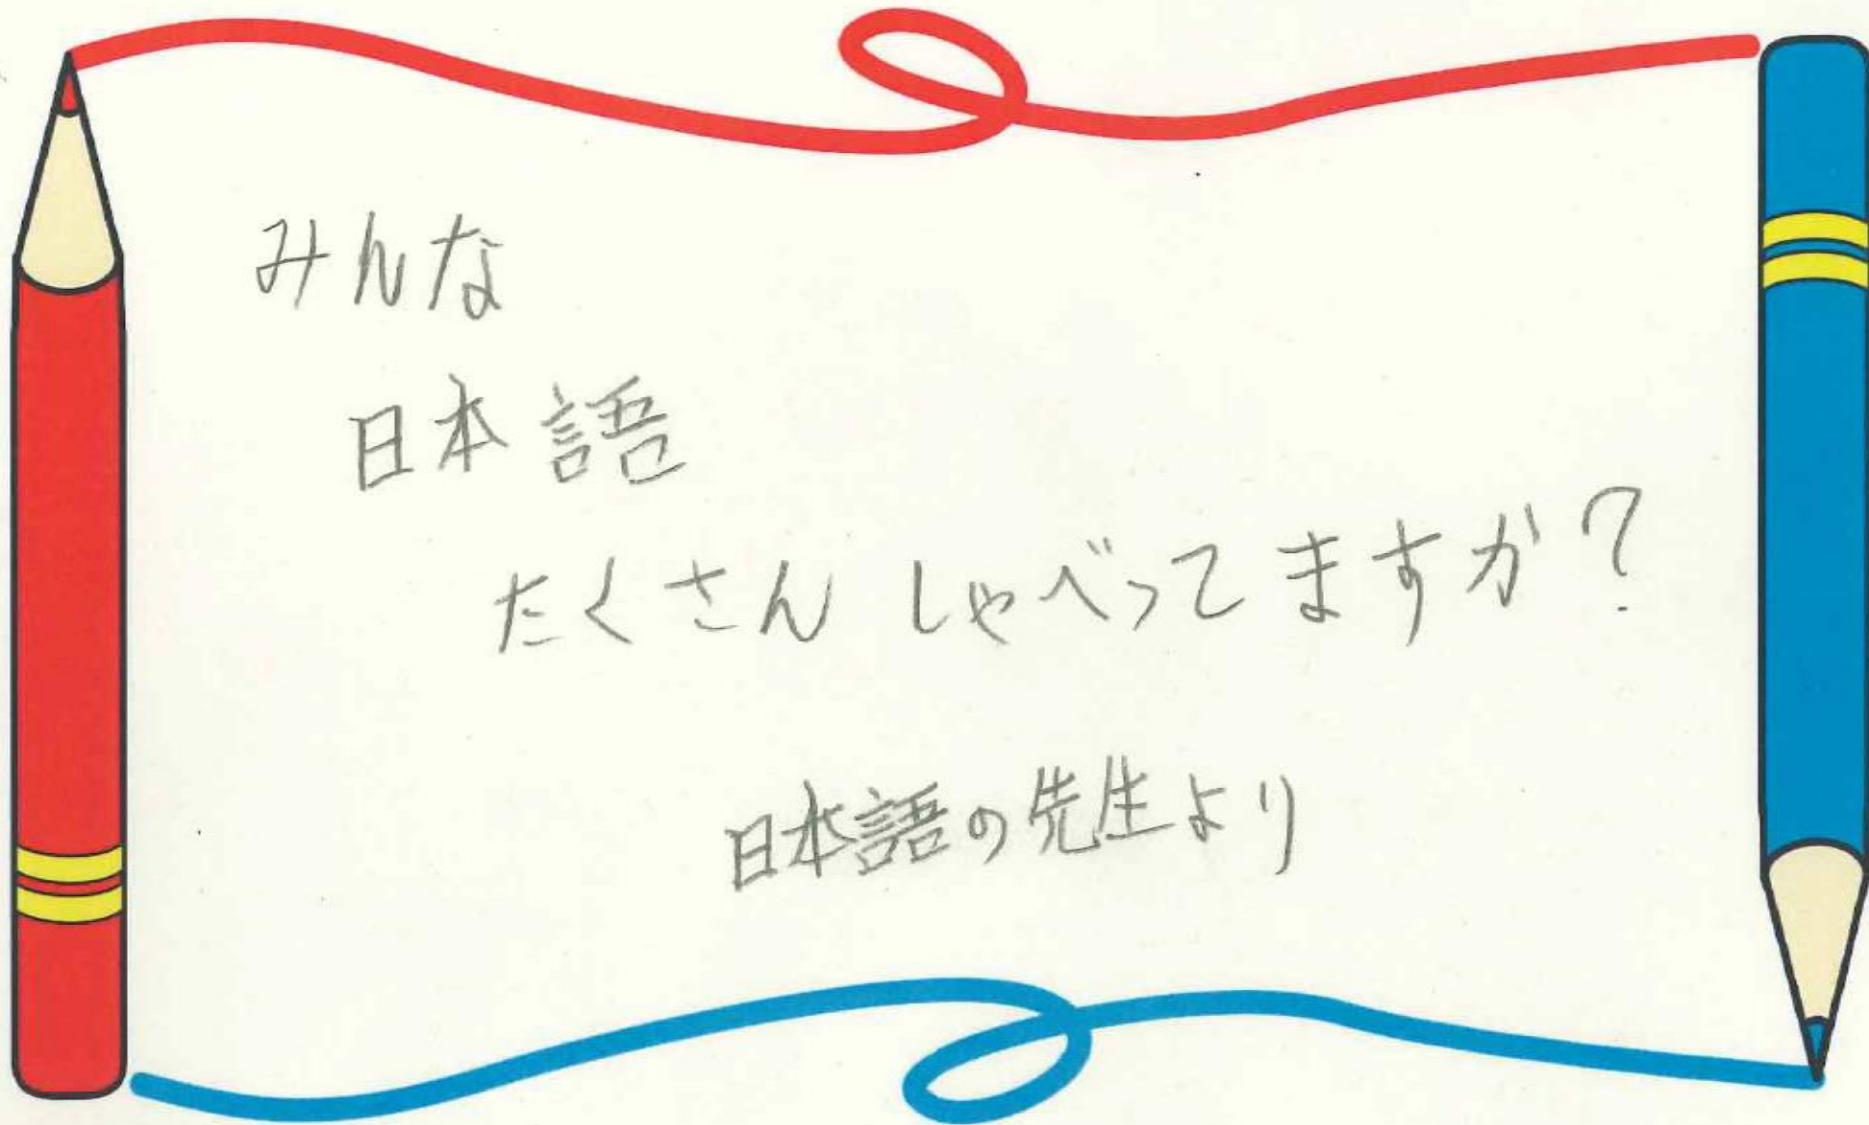 みんな
日本語
たくさん しゃべってますか?
日本語の先生より